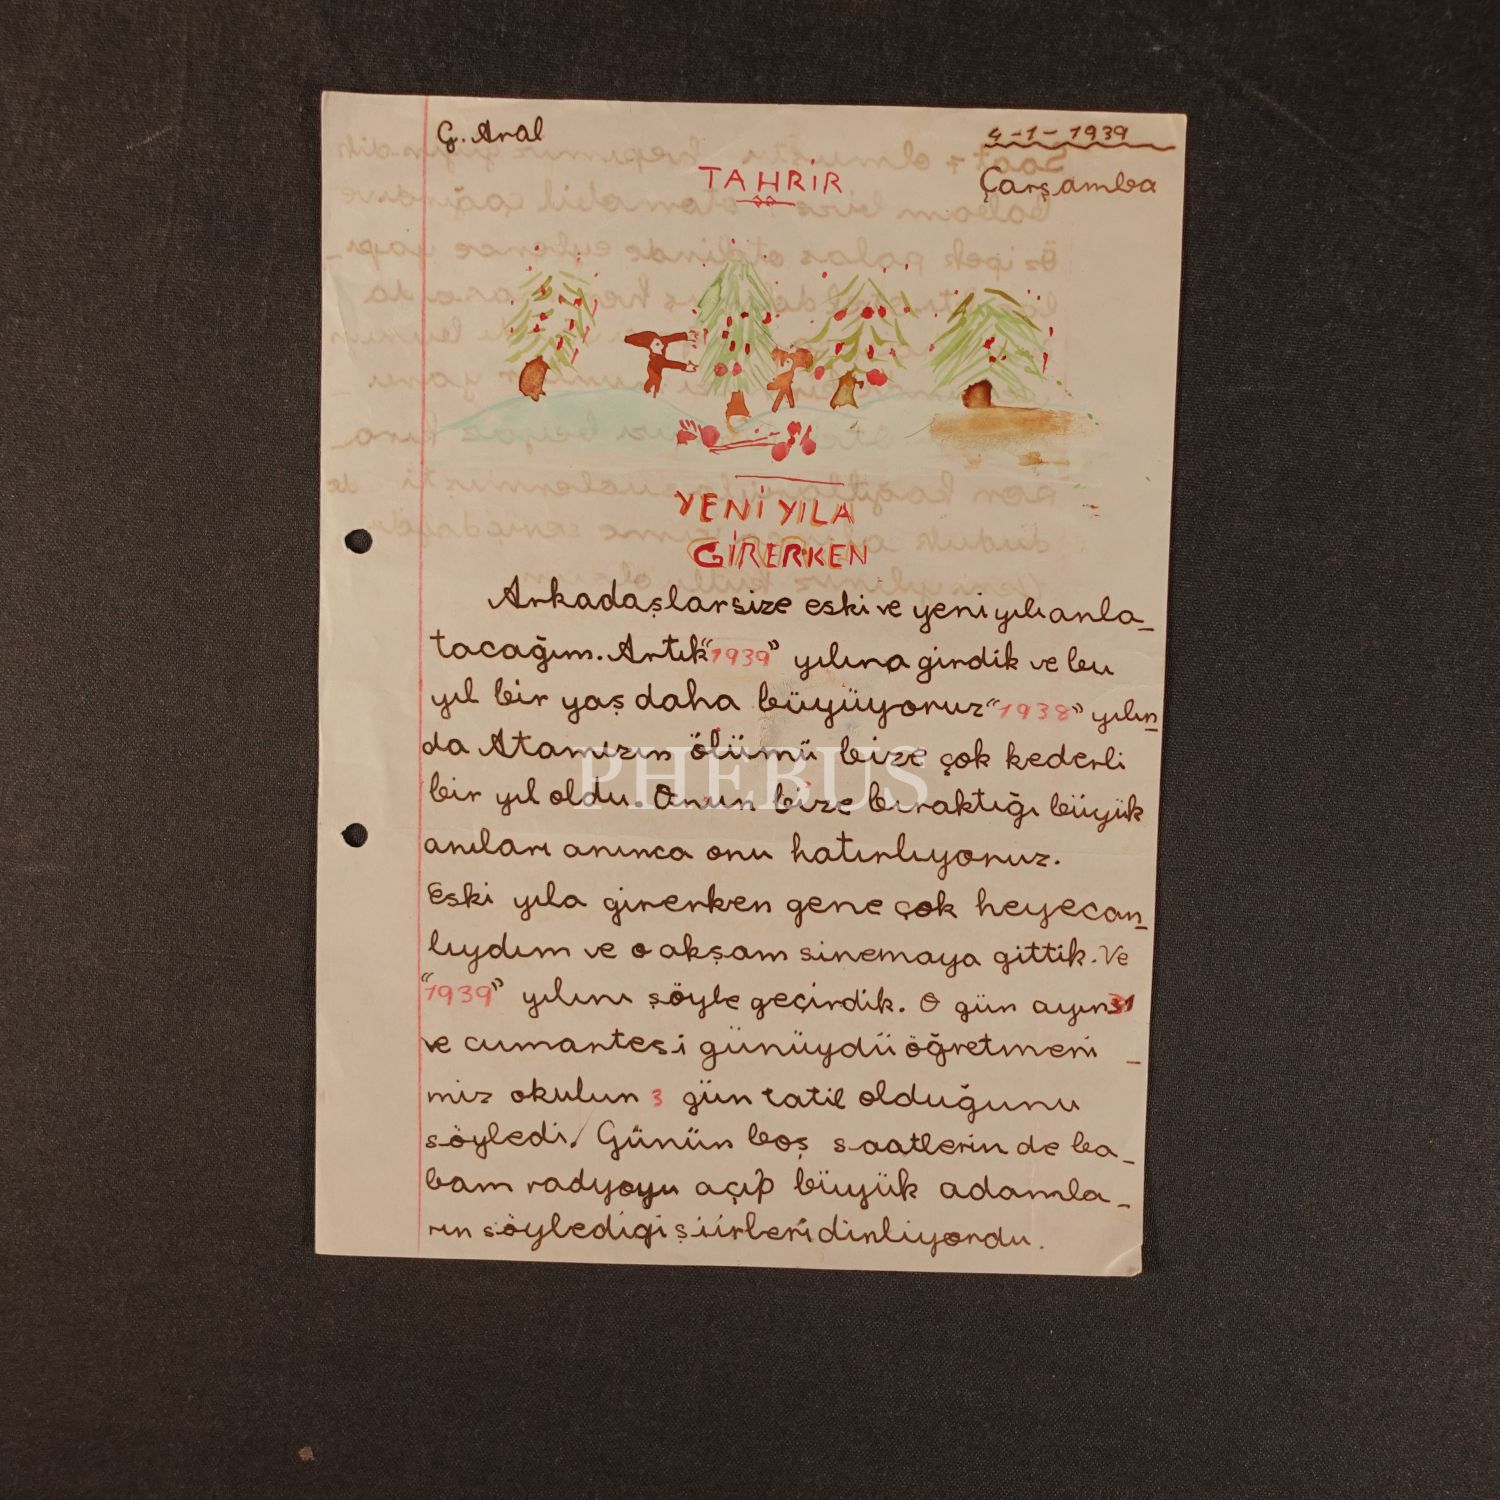 G. Aral
4-1-1939
Çarşamba
TAHRİR
YENİ YILA
GİRERKEN
Arkadaşlar size eski ve yeni yılı anla_
tacağım. Artık "1939" yılına girdik ve bu
yıl bir yaş daha büyüyoruz "1938" yılın
da Atamızın ölümü bize çok kederli
bir yıl oldu. Onun bize bıraktığı büyük
anıları anınca onu hatırlıyoruz.
Eski yıla girerken gene çok heyecan_
lıydım ve o akşam sinemaya gittik. Ve
"1939" yılını şöyle geçirdik. O gün ayın 31
ve cumartesi günüydü öğretmeni_
miz okulun 3 gün tatil olduğunu
söyledi. Günün boş saatlerin de ba_
bam radyoyu açıp büyük adamla_
rın söyledigi şiirleri dinliyordu.
PHEBUS